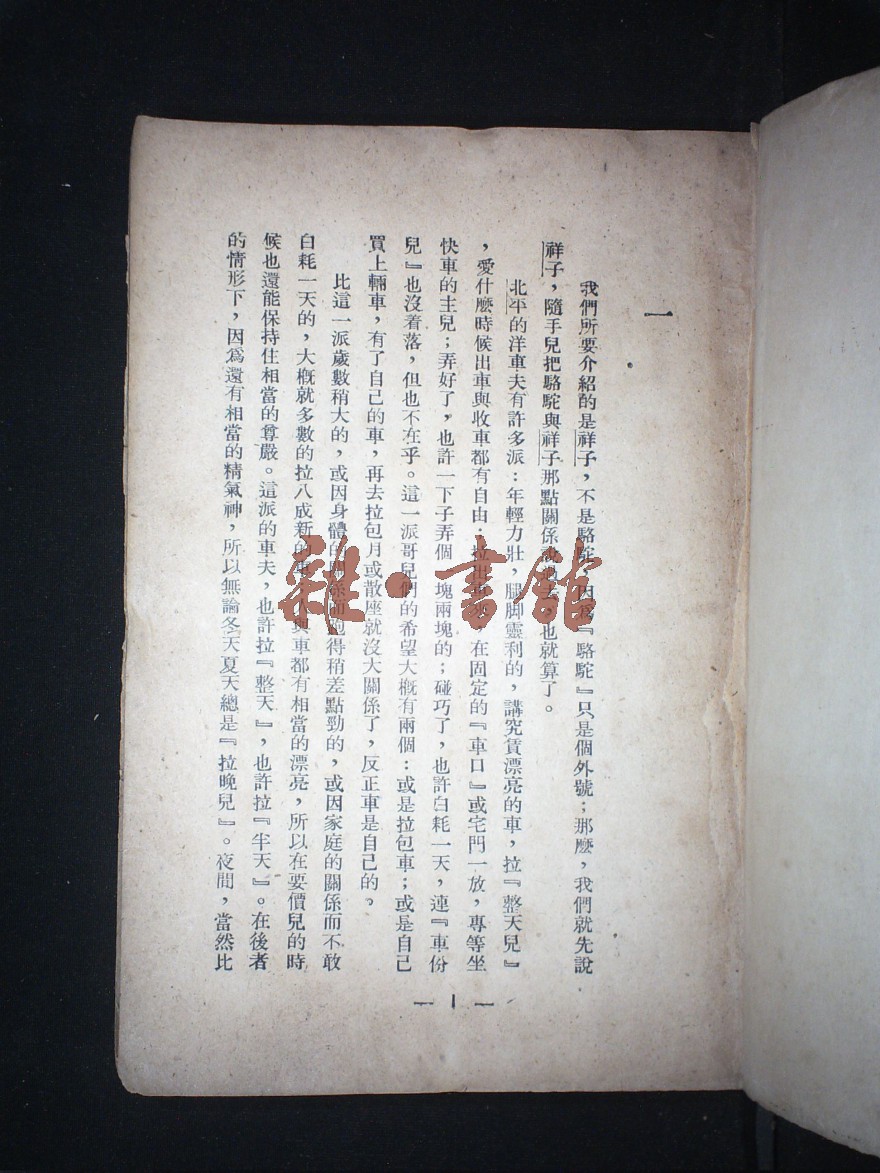 一
我們所要介紹的是祥子，不是駱駝，因爲『駱駝』只是個外號；那麼，我們就先說
祥子，隨手兒把駱駝與祥子那點關係說過去，也就算了。
北平的洋車夫有許多派：年輕力壯，腿脚靈利的，講究賃漂亮的車，拉『整天兒』
，愛什麼時候出車與收車都有自由；拉出車來，在固定的『車口』或宅門一放，專等坐
快車的主兒；弄好了，也許一下子弄個一塊兩塊的；碰巧了，也許白耗一天，連『車份
兒』也沒着落，但也不在乎。這一派哥兒們的希望大槪有兩個：或是拉包車；或是自己
買上輛車，有了自己的車，再去拉包月或散座就沒大關係了，反正車是自己的。
比這一派歲數稍大的，或因身體的關係而跑得稍差點勁的，或因家庭的關係而不敢
白耗一天的，大槪就多數的拉八成新的車；人與車都有相當的漂亮，所以在要價兒的時
候也還能保持住相當的尊嚴。這派的車夫，也許拉『整天』，也許拉『半天』。在後者
的情形下，因爲還有相當的精氣神，所以無論冬天夏天總是『拉晚兒』。夜間，當然比
— 1 —
雜·書館